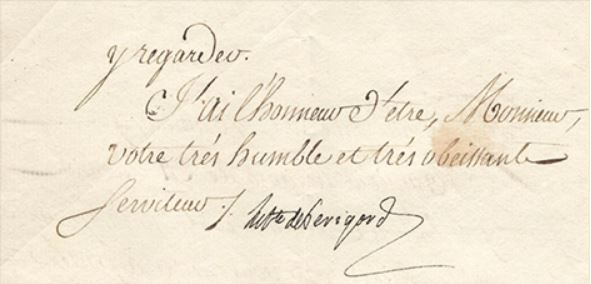 y regarder.
J'ai l'honneur d'etre, Monsieur,
votre trés humble et trés obeissant
Serviteur ./. de Perigord